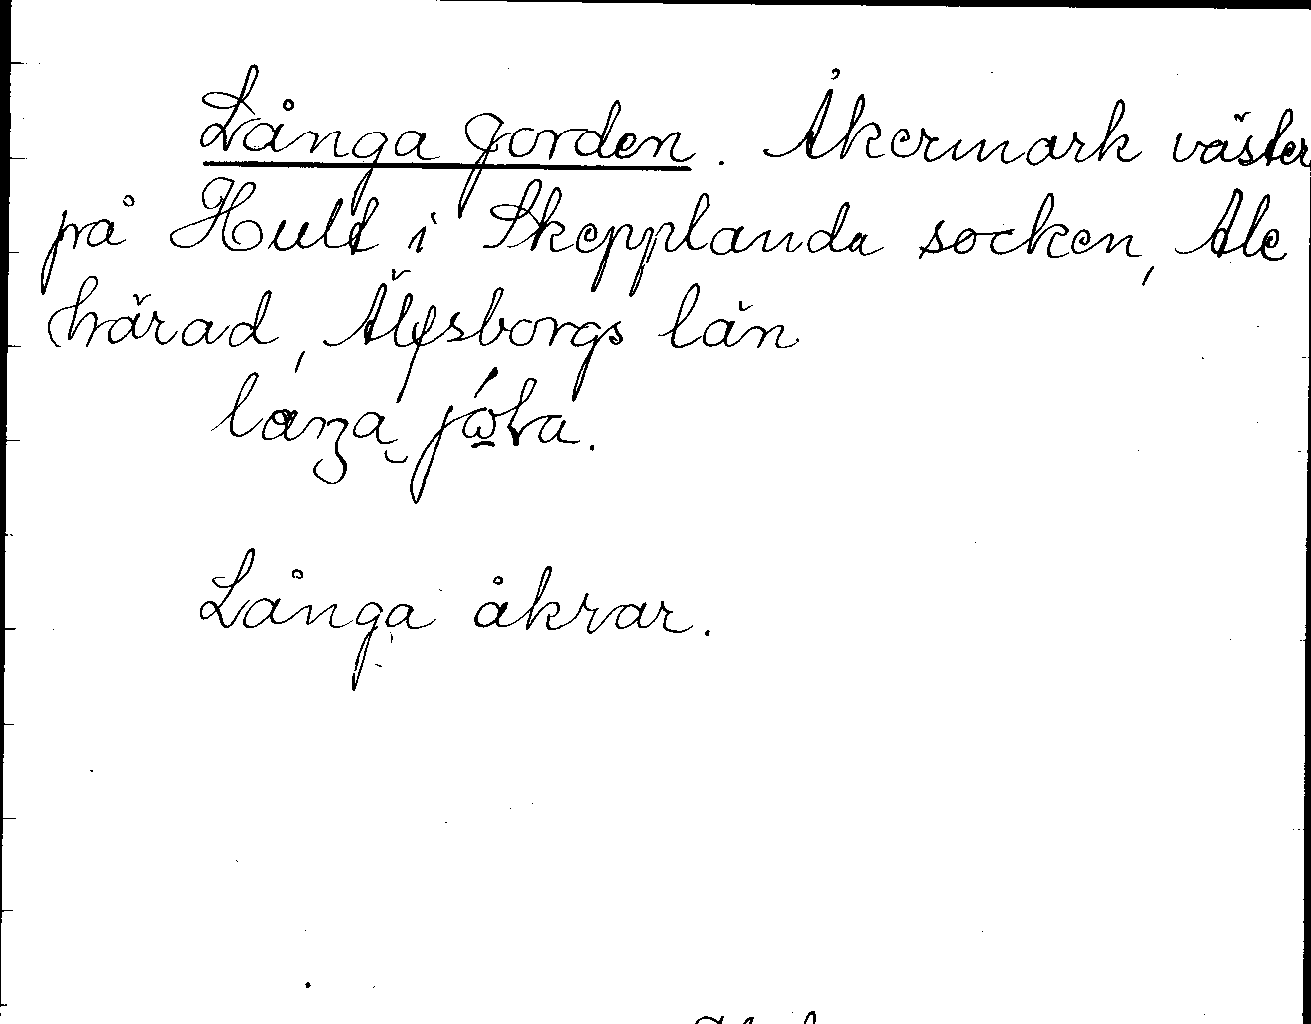 Långa Jorden. Åkermark väster
på Hult i Skepplanda socken, Ale
härad, Älfsborgs län
Långa åkrar.